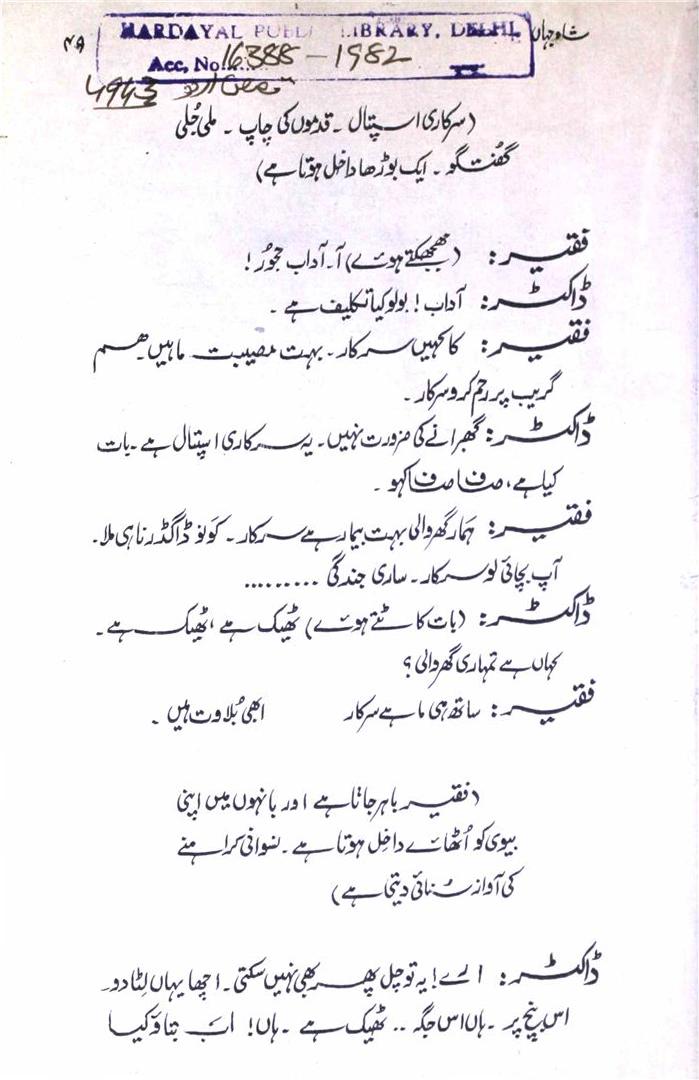 شاہ جہاں
۴۹
HARDAYAL PUBLIC LIBRARY, DELHI
Acc, No. 16388 – 1982
4943
(سرکاری اسپتال ۔ قدموں کی چاپ ۔ ملی جُلی
گفُتگو ۔ ایک بوڑھا داخل ہوتا ہے)
فقیر: (جھجکتے ہوئے) آ۔ آداب حجوُر!
ڈاکٹر: آداب! بولو کیا تکلیف ہے ۔
فقیر: کا کہیں سرکار ۔ بہت مصیبت ما ہیں ۔ ہم
گریب پر رحم کرو سرکار ۔
ڈاکٹر: گھبرانے کی ضرورت نہیں ۔ یہ سرکاری اسپتال ہے ۔ بات
کیا ہے، صاف صاف کہو ۔
فقیر: ہمار گھر والی بہت بیمار ہے سرکار ۔ کونو ڈاگڈر ناہی ملا ۔
آپ بچائی لو سرکار ۔ ساری جندگی .........
ڈاکٹر: (بات کاٹتے ہوئے) ٹھیک ہے، ٹھیک ہے ۔
کہاں ہے تمہاری گھر والی؟
فقیر: ساتھ ہی ما ہے سرکار ابھی بُلاوت ہیں ۔
(فقیر باہر جاتا ہے اور بانہوں میں اپنی
بیوی کو اُٹھائے داخل ہوتا ہے ۔ نسوانی کراہنے
کی آواز سُنائی دیتی ہے)
ڈاکٹر: ارے! یہ تو چل پھر بھی نہیں سکتی ۔ اچھا یہاں لِٹا دو ۔
اس بنچ پر ۔ ہاں اس جگہ .. ٹھیک ہے ۔ ہاں! اب بتاؤ کیا